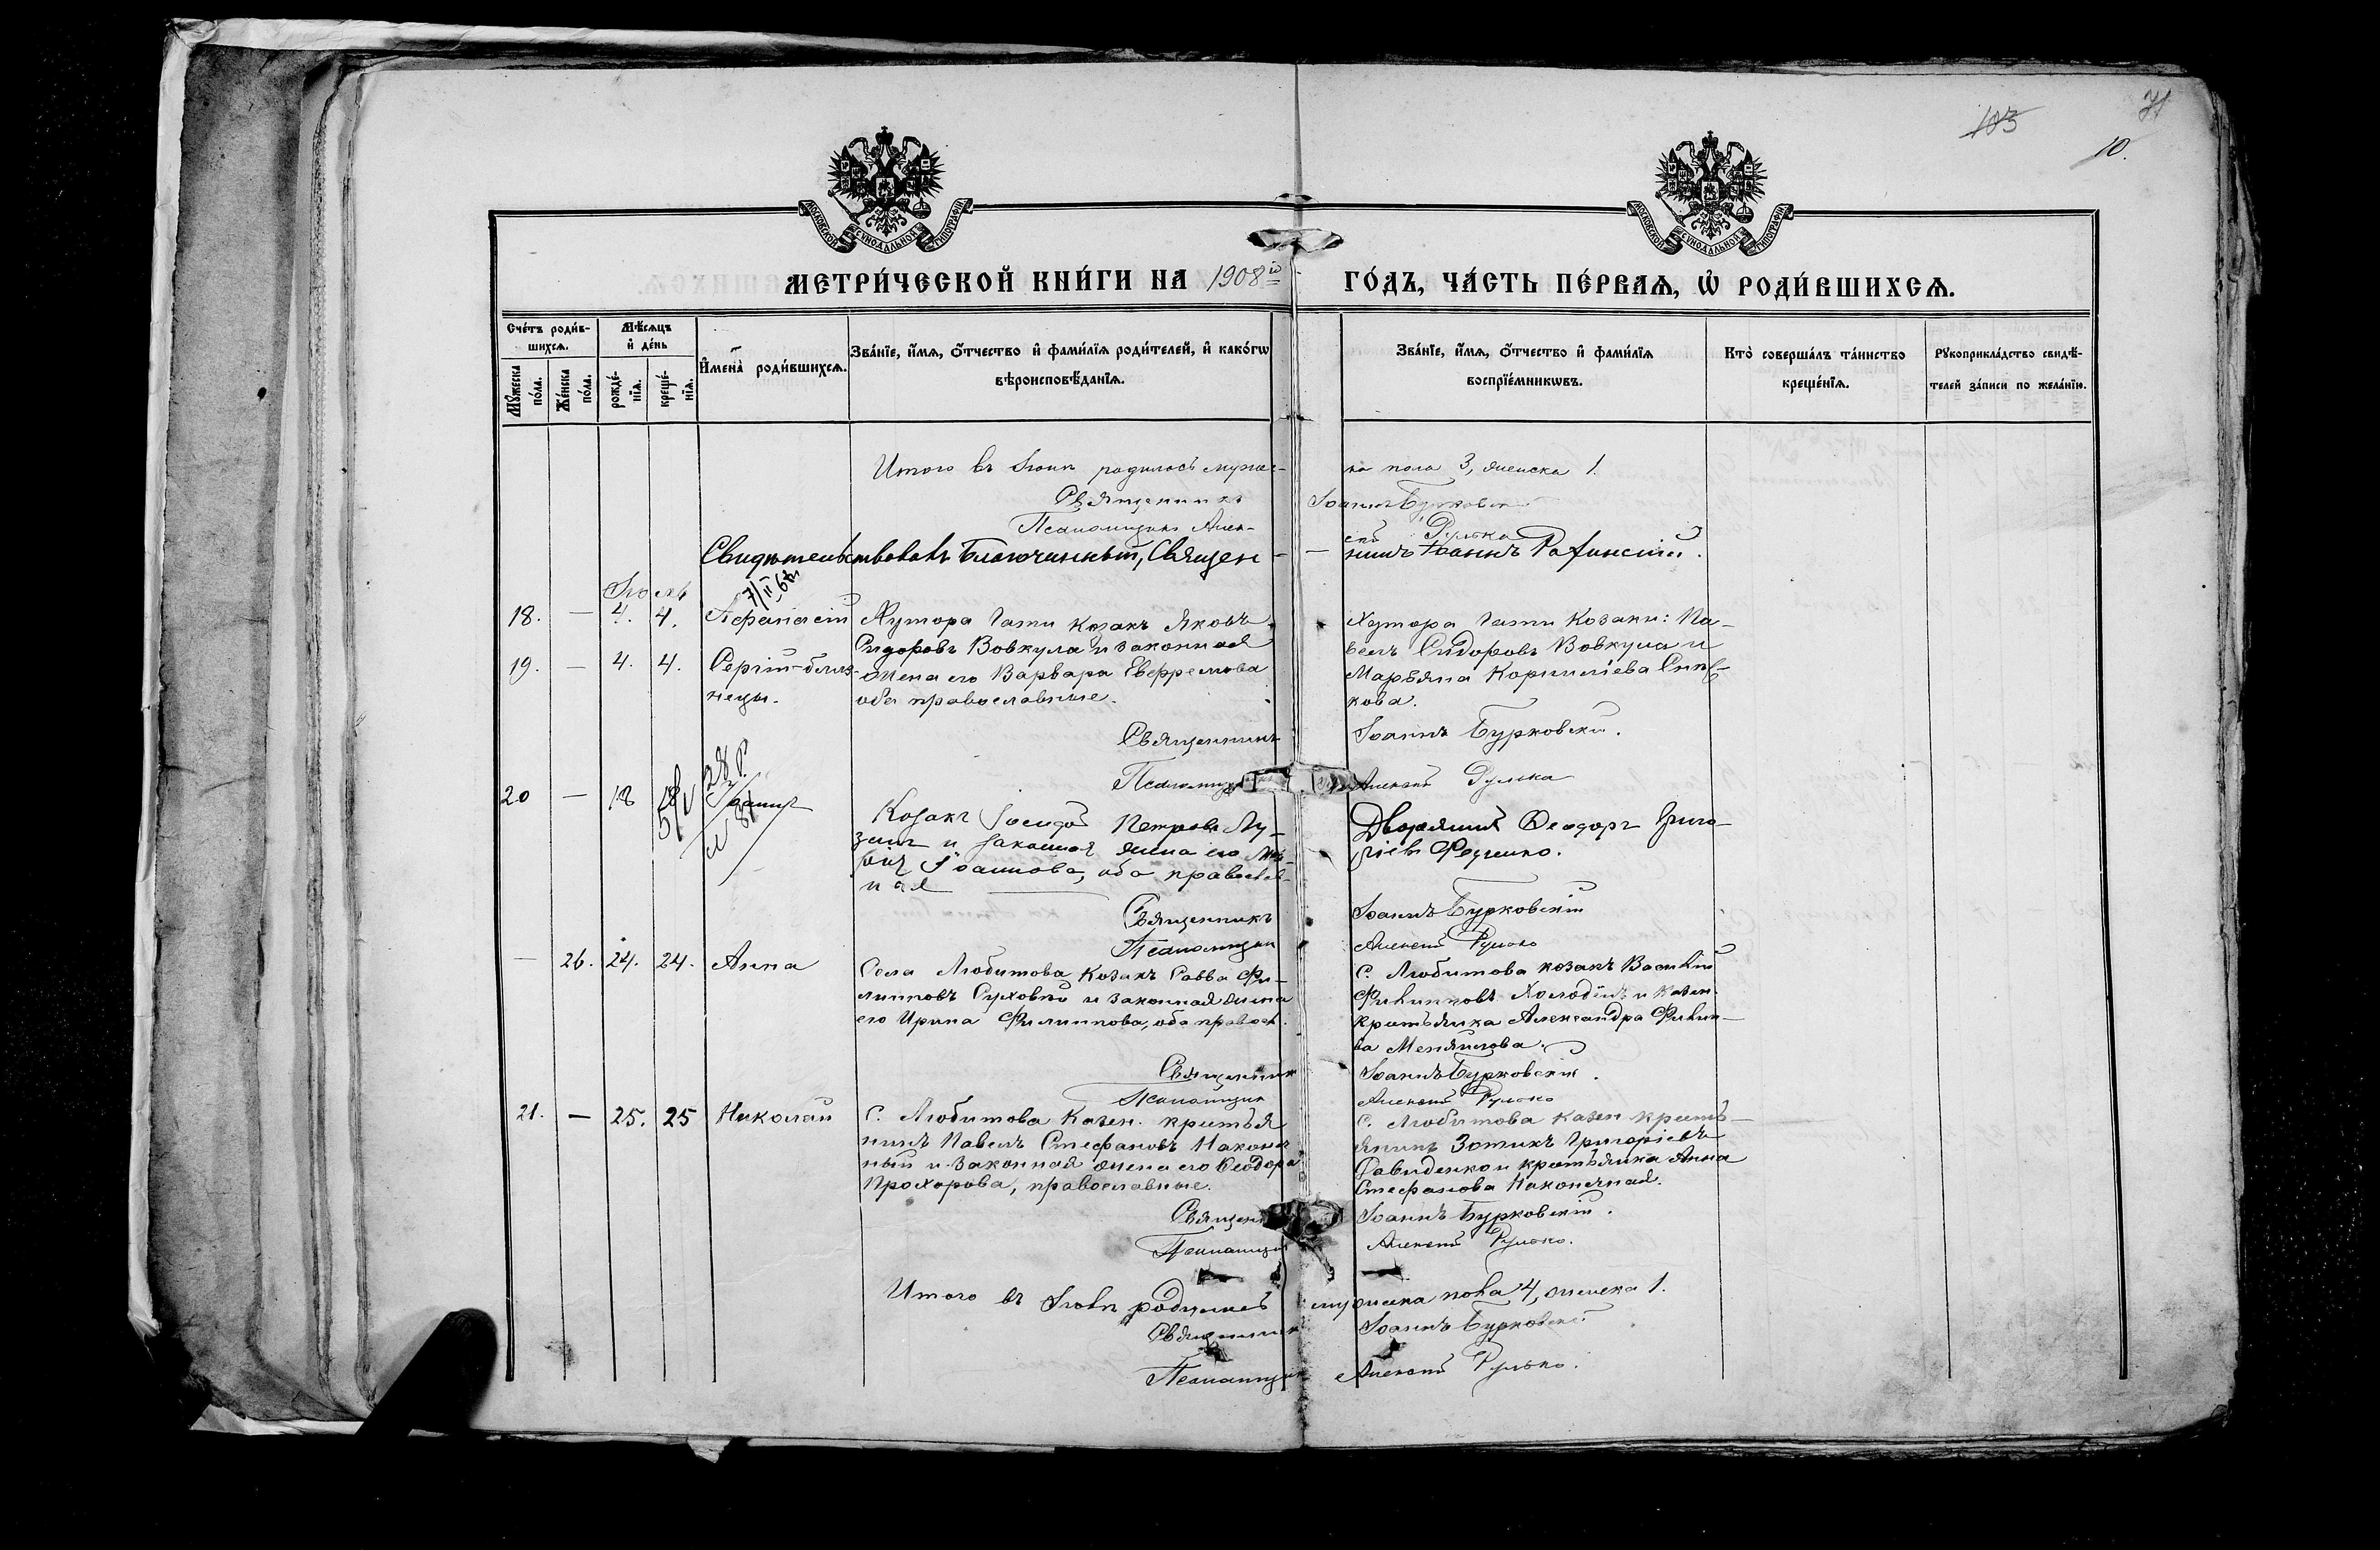 103
71
10.
МОСКОВСКОЙ СѴНОДАЛЬНОЙ ТИПОГРАФІИ
МОСКОВСКОЙ СѴНОДАЛЬНОЙ ТИПОГРАФІИ
МЕТРИ́ЧЕСКОЙ КНИ́ГИ НА 1908й ГО́ДЪ, ЧА́СТЬ ПЕ́РВАѦ, Ѡ҆ РОДИ́ВШИХСѦ.
Сче́тъ роди́в-
шихсѧ.
Мѣ́сѧцъ
и҆ де́нь
И҆мена̀ роди́вшихсѧ.
Зва́нїе, и҆́мѧ, ѻ҆́тчество и҆ фами́лїѧ роди́телей, и҆ како́гѡ
вѣроисповѣ́данїѧ.
Зва́нїе, и҆́мѧ, ѻ҆́тчество и҆ фами́лїѧ
воспрїе́мникѡвъ.
Кто̀ соверша́лъ та́инство
креще́нїѧ.
Рꙋкоприкла́дство свидѣ́-
телей за́писи по жела́нїю.
Мꙋ́жеска
по́ла.
Же́нска
по́ла.
рожде́-
нїѧ.
креще́-
нїѧ.
Итого въ Іюнѣ родилось мужес-
ка пола 3, женска 1.
Священникъ Іоаннъ Бурковскій
Псаломщикъ Алек-
сѣй Рулька
Свидѣтельствовалъ Благочинный, Священ-
никъ Іоаннъ
Іюль
18. — 4. 4. Аѳанасій
Хутора Гати козакъ Яковъ
Сидоровъ Вовкула и законная
19. — 4. 4. Сергій-близ-
нецы.
жена его Варвара Евфремова
оба православные.
Хутора Гати козаки: Па-
велъ Сидоровъ Вовкула и
Марѳяна Корниліева
кова.
Священникъ Іоаннъ Бурковскій.
Псаломщикъ Алексѣй Рулька
20 — 18 18 Іоаннъ
Козакъ Іосифъ Петровъ Лу-
и законная жена его Ма-
рія Іоаннова, оба православ-
ная
Дворянинъ Ѳеодоръ Григо-
ріевъ
Священникъ Іоаннъ Бурковскій
Псаломщикъ Алексѣй Рулько
— 26. 24. 24. Анна
Села Любитова козакъ Савва Фи-
липповъ Суховій и законная жена
его Ирина Филиппова, оба правосл.
С. Любитова козакъ Василій
Филипповъ Холодій и казен.
крестьянка Александра Филип-
ва Меняйлова.
Священникъ Іоаннъ Бурковскій.
Псаломщикъ Алексѣй Рулько
21. — 25. 25 Николай
С. Любитова казен. крестья
нинъ Павелъ Стефановъ Наконеч
ный и законная жена его Ѳеодора
Прохорова, православные.
С. Любитова казен. кресть-
янинъ Зотикъ Григоріевъ
Савиденко и крестьянка Анна
Стефанова Наконечная.
Священникъ Іоаннъ Бурковскій.
Псаломщикъ Алексѣй Рулько.
Итого въ Іюлѣ родилось мужеска пола 4, женска 1.
Священникъ Іоаннъ Бурковскій
Псаломщикъ Алексѣй Рулько.